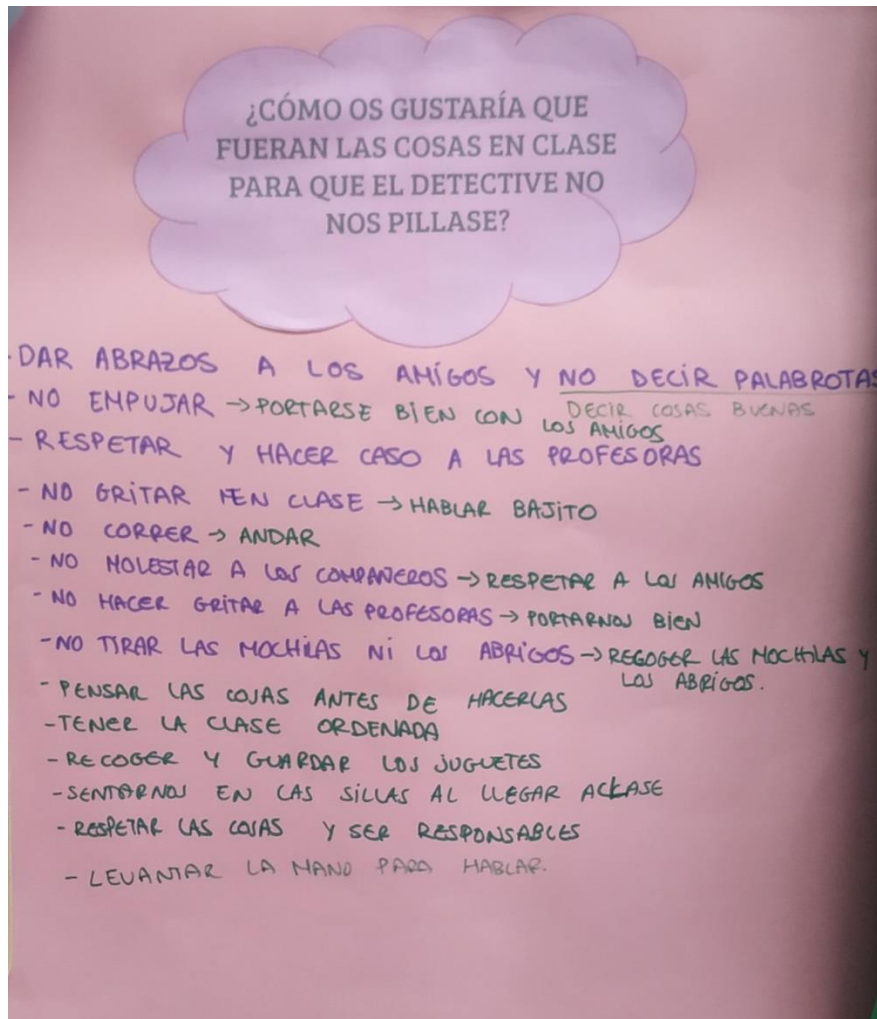 ¿CÓMO OS GUSTARÍA QUE
FUERAN LAS COSAS EN CLASE
PARA QUE EL DETECTIVE NO
NOS PILLASE?
- DAR ABRAZOS A LOS AMIGOS Y NO DECIR PALABROTAS
DECIR COSAS BUENAS
- NO EMPUJAR → PORTARSE BIEN CON LOS AMIGOS
- RESPETAR Y HACER CASO A LAS PROFESORAS
- NO GRITAR EN CLASE → HABLAR BAJITO
- NO CORRER → ANDAR
- NO MOLESTAR A LOS COMPAÑEROS → RESPETAR A LOS AMIGOS
- NO HACER GRITAR A LAS PROFESORAS → PORTARNOS BIEN
- NO TIRAR LAS MOCHILAS NI LOS ABRIGOS → REGOGER LAS MOCHILAS Y
LOS ABRIGOS.
- PENSAR LAS COSAS ANTES DE HACERLAS
- TENER LA CLASE ORDENADA
- RECOGER Y GUARDAR LOS JUGUETES
- SENTARNOS EN LAS SILLAS AL LLEGAR A CLASE
- RESPETAR LAS COSAS Y SER RESPONSABLES
- LEVANTAR LA MANO PARA HABLAR.